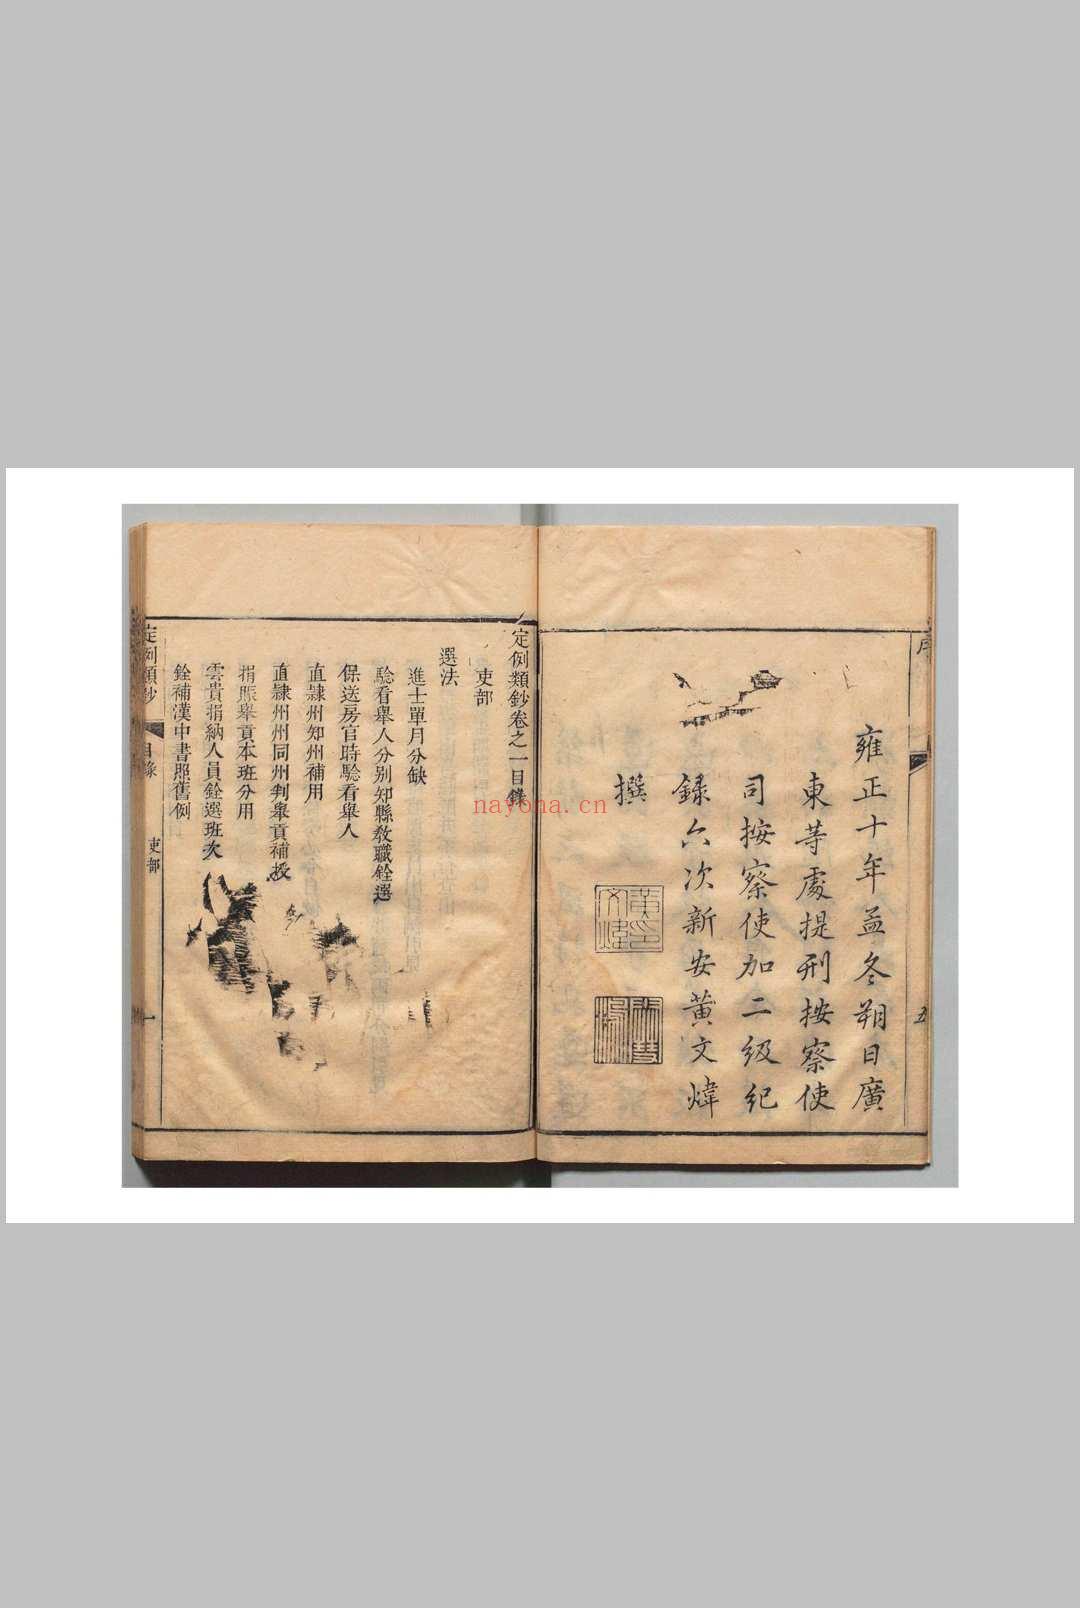 序
五
雍正十年孟冬朔日廣
東等處提刑按察使
司按察使加二級紀
錄六次新安黃文煒
撰
定例類鈔卷之一目錄
吏部
選法
進士單月分缺
驗看舉人分別知縣教職銓選
保送房官時驗看舉人
直隸州知州補用
直隸州州同州判舉貢補授
捐賑舉貢本班分用
雲貴捐納人員銓選班次
銓補漢中書照舊例
定例類鈔
目錄
吏部
一
nayona.cn